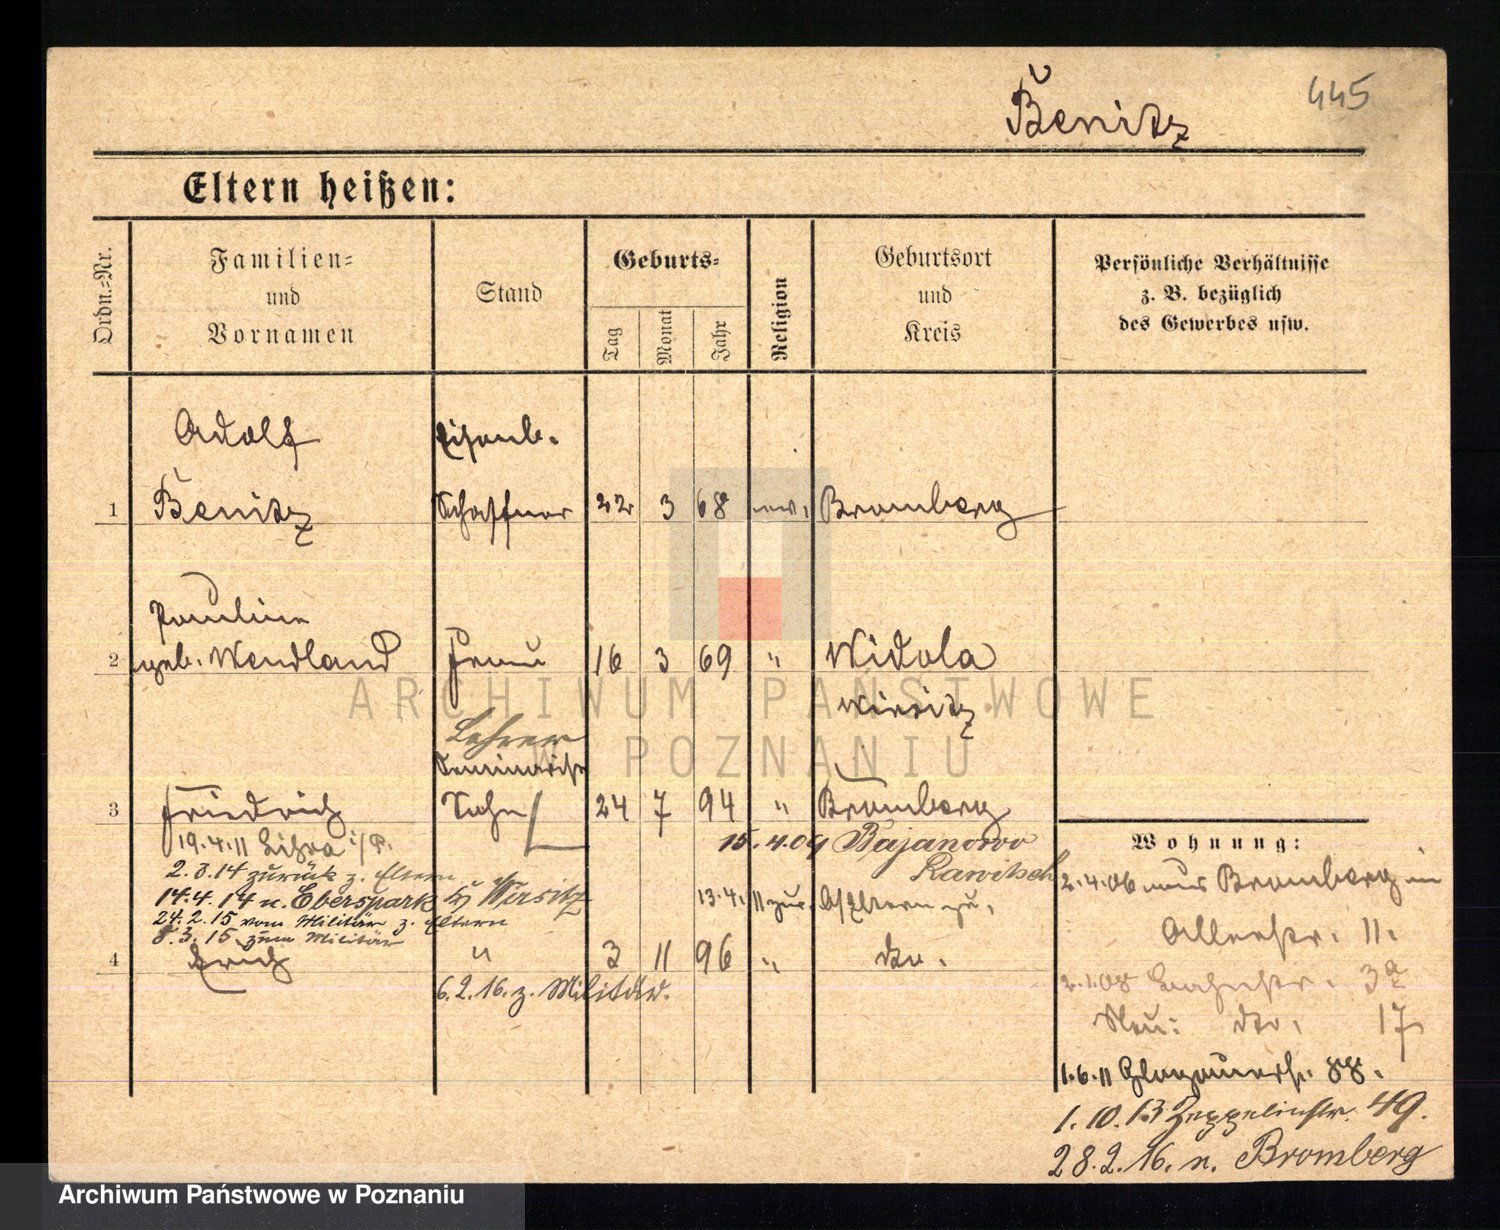 445
Benitz
Eltern heißen:
Ordn.-Nr.
Familien-
und
Vornamen
Stand
Geburts-
Tag
Monat
Jahr
Religion
Geburtsort
und
Kreis
Persönliche Verhältnisse
z. B. bezüglich
des Gewerbes usw.
Adolf Eisenb.
1 Benitz Schaffner 22 3 68 ev. Bromberg
Pauline
2 geb. Wendland Frau 16 3 69 " Widola
Wirsitz
Lehrer
Seminarist
3 Friedrich Sohn 24 7 94 " Bromberg
19.4.11 i/P.
15.4.09 Bajanowo
Rawitsch
2.3.14 zurück z. Eltern
14.4.14 n. Eberspark Wirsitz
13.4.11 zur.
24.2.15 vom Militär z. Eltern
8.3.15 zum Militär
4 Erich " 3 11 96 " do.
6.2.16. z. Militär.
Wohnung:
2.4.06 aus Bromberg in
Allerstr. 11.
2.1.08 3a
Neu: do. 17
1.6.11 Glogauerstr. 88.
1.10.13 Zeppelinstr. 49.
28.2.16. n. Bromberg
ARCHIWUM PAŃSTWOWE
W POZNANIU
Archiwum Państwowe w Poznaniu